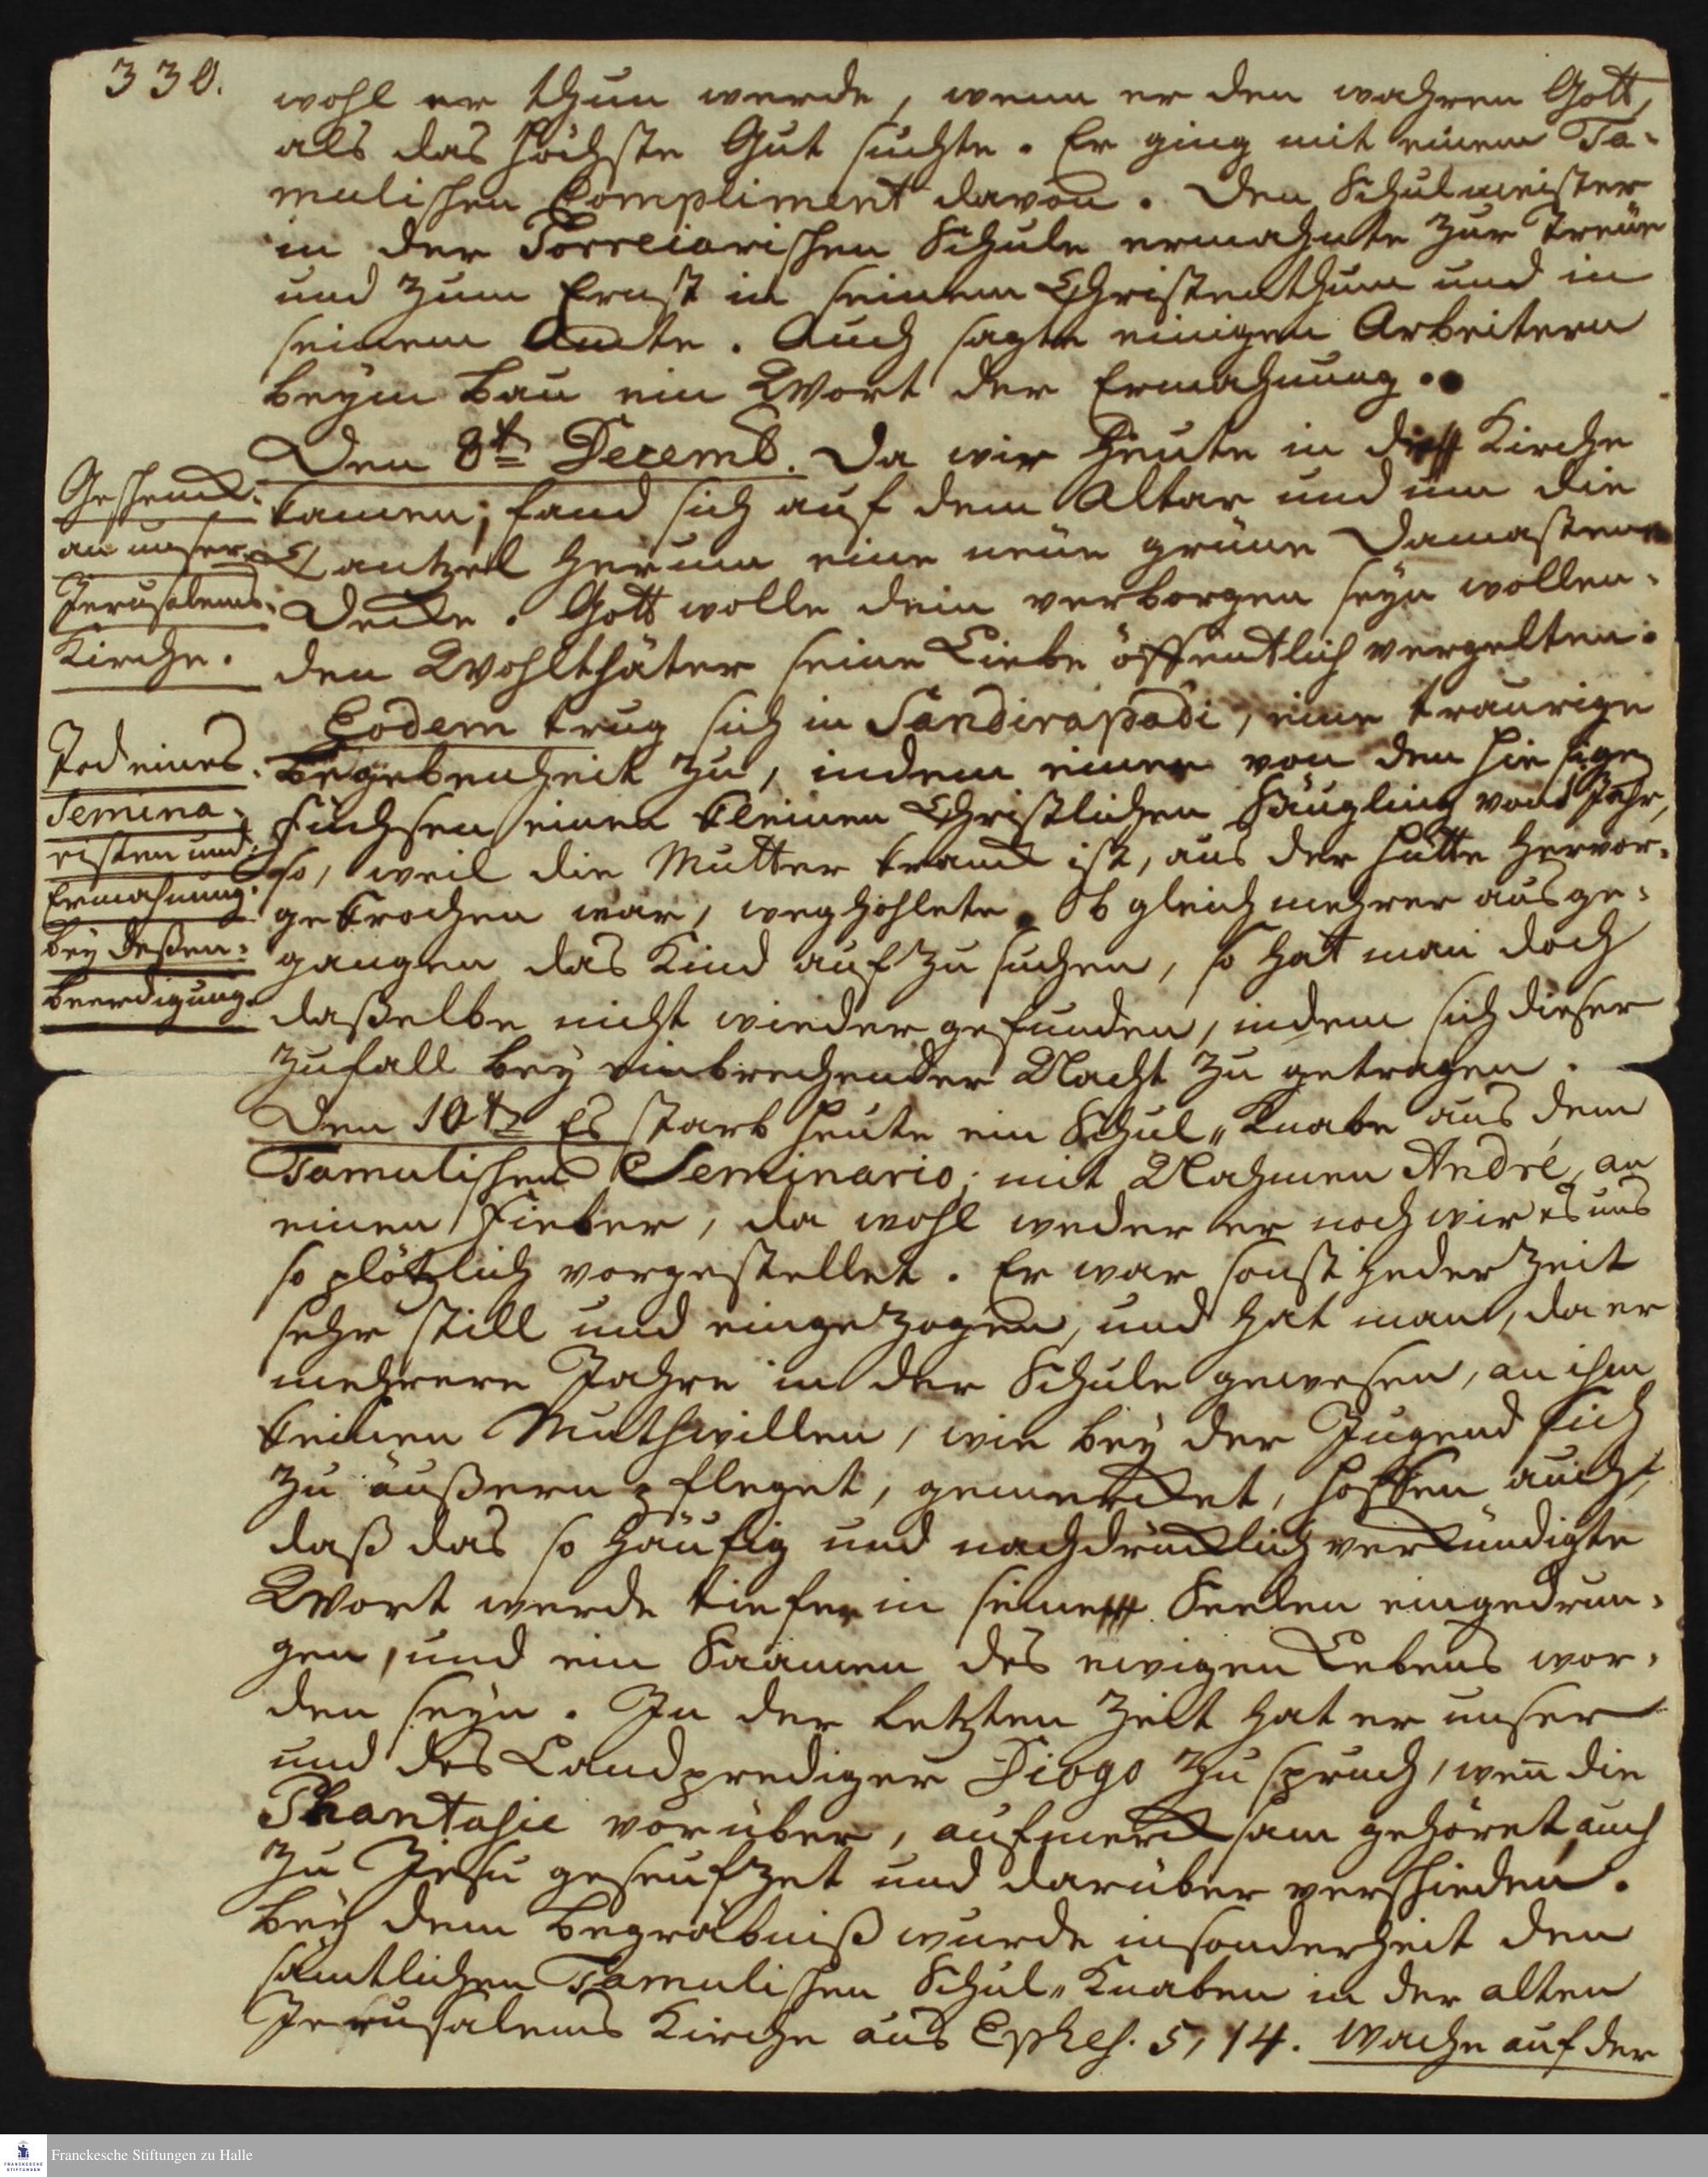 330.
wohl er thun werde, wenn er den wahren Gott,
als das höchste Gut suchte. Er ging mit einem Ta-
mulischen Compliment davon. Den Schulmeister
in der Porreiarischen Schule ermahnte zur Treüe
und zum Ernst in seinem Christenthum und in
seinem Amte. Auch sagte einigen Arbeitern
beym Bau ein Wort der Ermahnung.
Den 8t. Decemb. Da wir heute in die Kirche
kamen; fand sich auf dem Altar und um die
Cantzel herum eine neüe grüne Damasten
Decke. Gott wolle dem verborgen seyn wollen-
den Wohlthäter seine Liebe öffentlich vergelten.
Geschenck
an unser
Jerusalems-
Kirche.
Eodem trug sich in Sandirapadi, eine traurige
Begebenheit zu, indem einer von den hiesigen
Füchsen einen kleinen Christlichen Säugling von 1 Jahr,
so, weil die Mutter kranck ist, aus der Hütte hervor-
gekrochen war, weghohlete. Ob gleich mehrer ausge-
gangen das Kind auf zu suchen, so hat man doch
daßelbe nicht wieder gefunden, indem sich dieser
Zufall bey einbrechender Nacht zu getragen.
Tod eines
Semina-
risten und
Ermahnung
bey deßen
Beerdigung.
Den 10t. Es starb heute ein Schul-Knabe aus dem
Tamulischen Seminario; mit Nahmen André, an
einen Fieber, da wohl weder er noch wir es uns
so plötzlich vorgestellet. Er war sonst jeder Zeit
sehr still und eingezogen, und hat man, da er
mehrere Jahre in der Schule gewesen, an ihm
keinen Muthwillen, wie bey der Jugend sich
zu äußern pfleget, gemercket, hoffen auch,
daß das so häufig und nachdrücklich verkündigte
Wort werde tiefer in seine Seelen eingedrun-
gen, und ein Saamen des ewigen Lebens wor-
den seyn. In der letzten Zeit hat er unser
und des Landprediger Diogo Zuspruch, weñ die
Phantasie vorüber, aufmercksam gehöret, auch
zu Jesu geseufzet und darüber verschieden.
Bey dem Begräbniß wurde insonderheit den
sämtlichen Tamulischen Schul-Knaben in der alten
Jerusalems Kirche aus Ephes. 5, 14. Wache auf der
Franckesche Stiftungen zu Halle